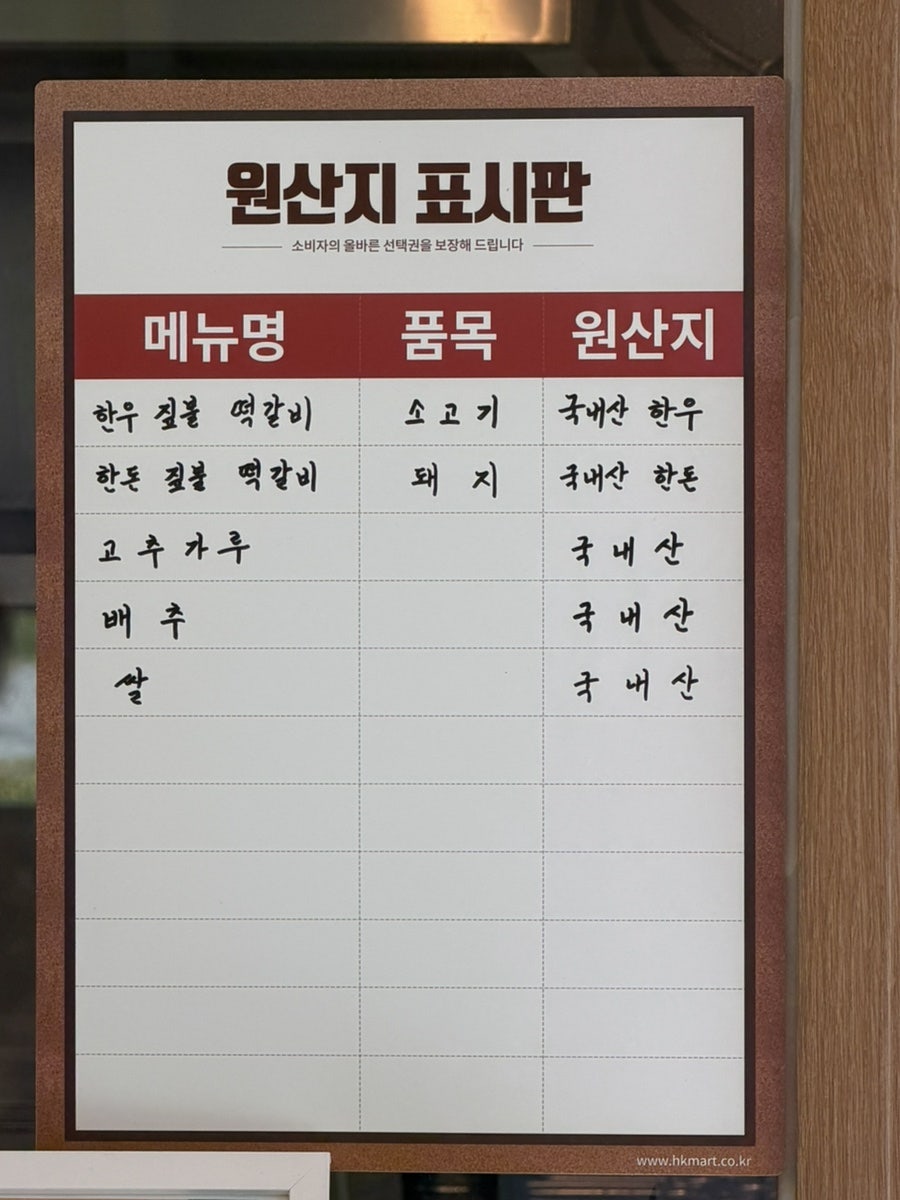 원산지 표시판
소비자의 올바른 선택권을 보장해 드립니다
메뉴명 품목 원산지
한우 짚불 떡갈비 소고기 국내산 한우
한돈 짚불 떡갈비 돼지 국내산 한돈
고추가루 국내산
배추 국내산
쌀 국내산
www.hkmart.co.kr